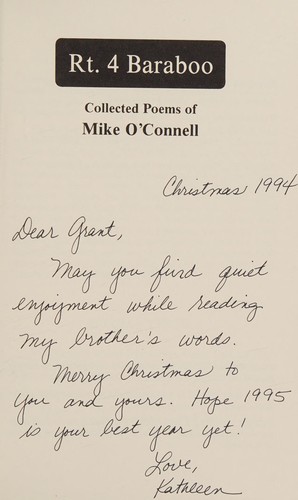 Rt. 4 Baraboo
Collected Poems of
Mike O'Connell
Christmas 1994
Dear Grant,
May you find quiet
enjoyment while reading
my brother's words.
Merry Christmas to
you and yours. Hope 1995
is your best year yet!
Love,
Kathleen